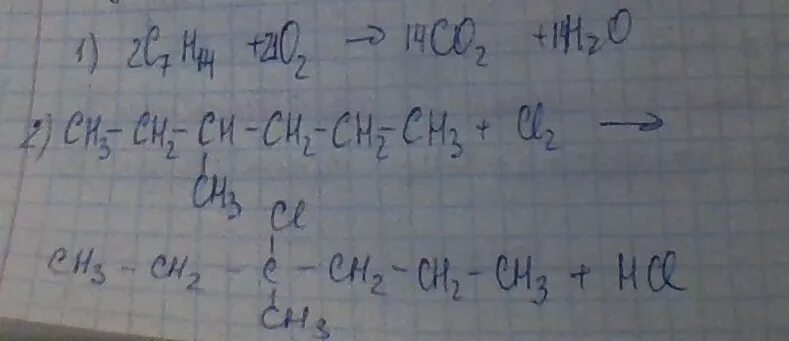 1) 2C₇H₁₄ + 21O₂ → 14CO₂ + 14H₂O
2) CH₃ - CH₂ - CH - CH₂ - CH₂ - CH₃ + Cl₂ →
CH₃
Cl
CH₃ - CH₂ - C - CH₂ - CH₂ - CH₃ + HCl
CH₃